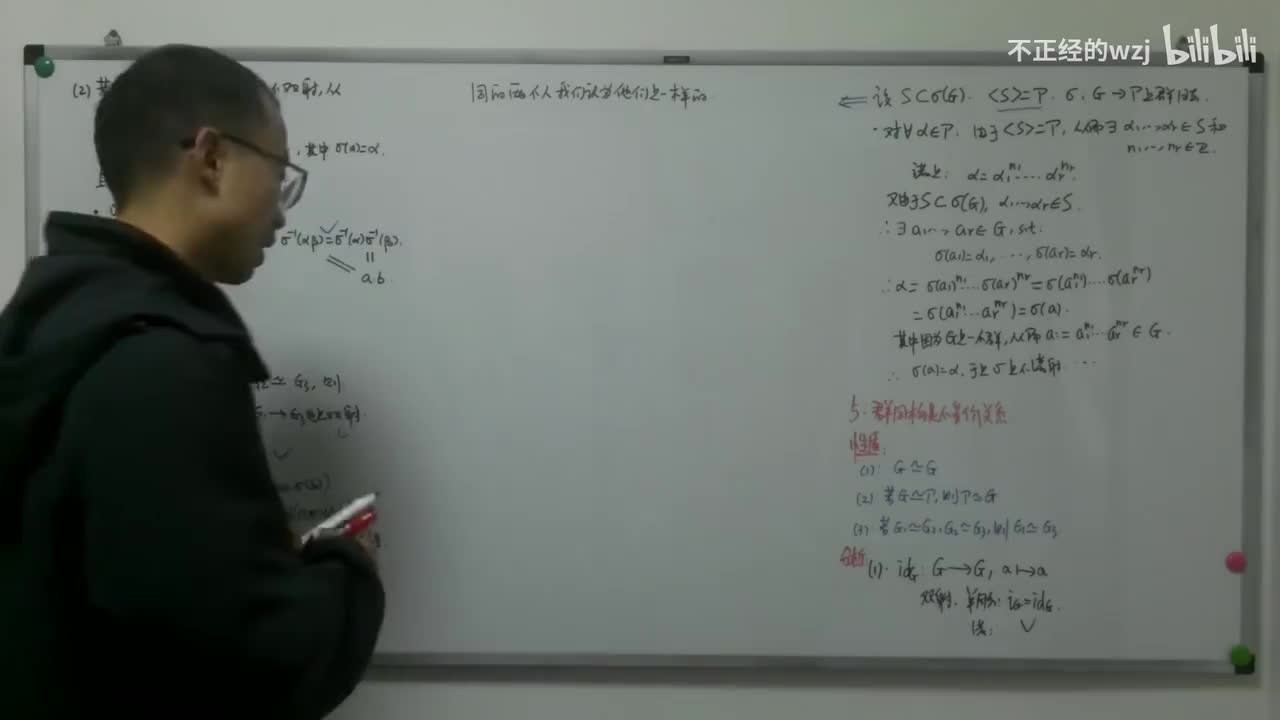 不正经的wzj bilibili
(2) 若
个双射,从
，其中 σ(a)=α.
σ⁻¹(αβ)=σ⁻¹(α)σ⁻¹(β).
||
a b
≃ G₃, 则
→ G₃也是双射.
同的两个人我们认为他们是一样的.
⇐ 设 S⊂σ(G). <S>=P. σ: G→P是群同态.
· 对∀α∈P. 由于<S>=P, 从而∃ α₁,…,αr∈S和
n₁,…,nr∈Z.
满足: α=α₁ⁿ¹……αrⁿʳ.
又由于S⊂σ(G), α₁…αr∈S.
∴∃ a₁…, ar∈G, s.t.
σ(a₁)=α₁, …, σ(ar)=αr.
∴α= σ(a₁)ⁿ¹…σ(ar)ⁿʳ=σ(a₁ⁿ¹)…σ(arⁿʳ)
=σ(a₁ⁿ¹…arⁿʳ)=σ(a).
其中因为G是一个群,从而a:=a₁ⁿ¹…arⁿʳ∈G.
∴ σ(a)=α, 于是σ是个满射. …
5. 群同构是个等价关系
性质:
(1): G≃G
(2) 若G≃P, 则P≃G
(3) 若G₁≃G₂, G₂≃G₃, 则G₁≃G₃
分析
(1). id_G: G→G, a↦a
双射.
满: ✓